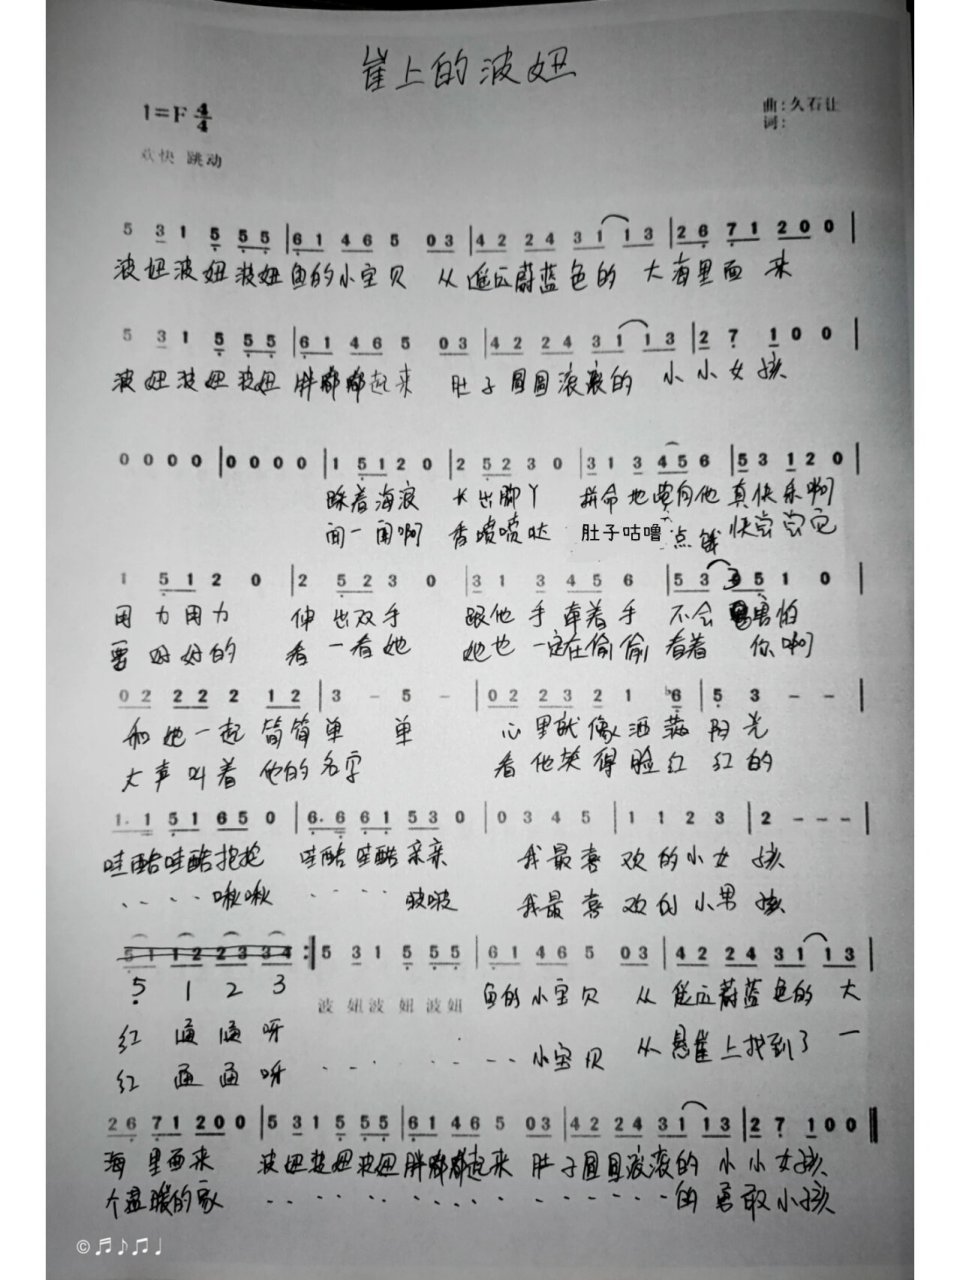 崖上的波妞
1=F 4/4
曲:久石让
词:
欢快 跳动
5 3 1 5 5 5 | 6 1 4 6 5 0 3 | 4 2 2 4 3 1 1 3 | 2 6 7 1 2 0 0 |
波妞波妞波妞鱼的小宝贝 从遥远蔚蓝色的 大海里面 来
5 3 1 5 5 5 | 6 1 4 6 5 0 3 | 4 2 2 4 3 1 1 3 | 2 7 1 0 0 |
波妞波妞波妞胖嘟嘟起来 肚子圆圆滚滚的 小小女孩
0 0 0 0 | 0 0 0 0 | 1 5 1 2 0 | 2 5 2 3 0 | 3 1 3 4 5 6 | 5 3 1 2 0 |
踩着海浪 长出脚丫 拼命地 向他 真快乐啊
闻一闻啊 香喷喷哒 肚子咕噜 点饿 快尝尝它
1 5 1 2 0 | 2 5 2 3 0 | 3 1 3 4 5 6 | 5 3 3 5 1 0 |
用力用力 伸出双手 跟他手牵着手 不会害怕
要好好的 看一看她 她也一定在偷偷看着你啊
0 2 2 2 2 1 2 | 3 - 5 - | 0 2 2 3 2 1 ♭6 | 5 3 - - |
和她一起简简单 单 心里就像洒满阳光
大声叫着他的名字 看他笑得脸红红的
1. 1 5 1 6 5 0 | 6. 6 6 1 5 3 0 | 0 3 4 5 | 1 1 2 3 | 2 - - - |
哇酷哇酷抱抱 哇酷哇酷亲亲 我最喜欢的小女孩
. . . . 啾啾 . . . . 啵啵 我最喜欢的小男孩
5 1 1 2 2 3 3 4 :| 5 3 1 5 5 5 | 6 1 4 6 5 0 3 | 4 2 2 4 3 1 1 3 |
5 1 2 3
波妞波妞波妞 鱼的小宝贝 从遥远蔚蓝色的 大
红通通呀
. . . . . . . 小宝贝 从悬崖上找到了一
红通通呀
2 6 7 1 2 0 0 | 5 3 1 5 5 5 | 6 1 4 6 5 0 3 | 4 2 2 4 3 1 1 3 | 2 7 1 0 0 ‖
海里面来 波妞波妞波妞胖嘟嘟起来 肚子圆圆滚滚的 小小女孩
个温暖的家 . . . . . . . . . . . . . . 的勇敢小孩
©♬♪♫♩